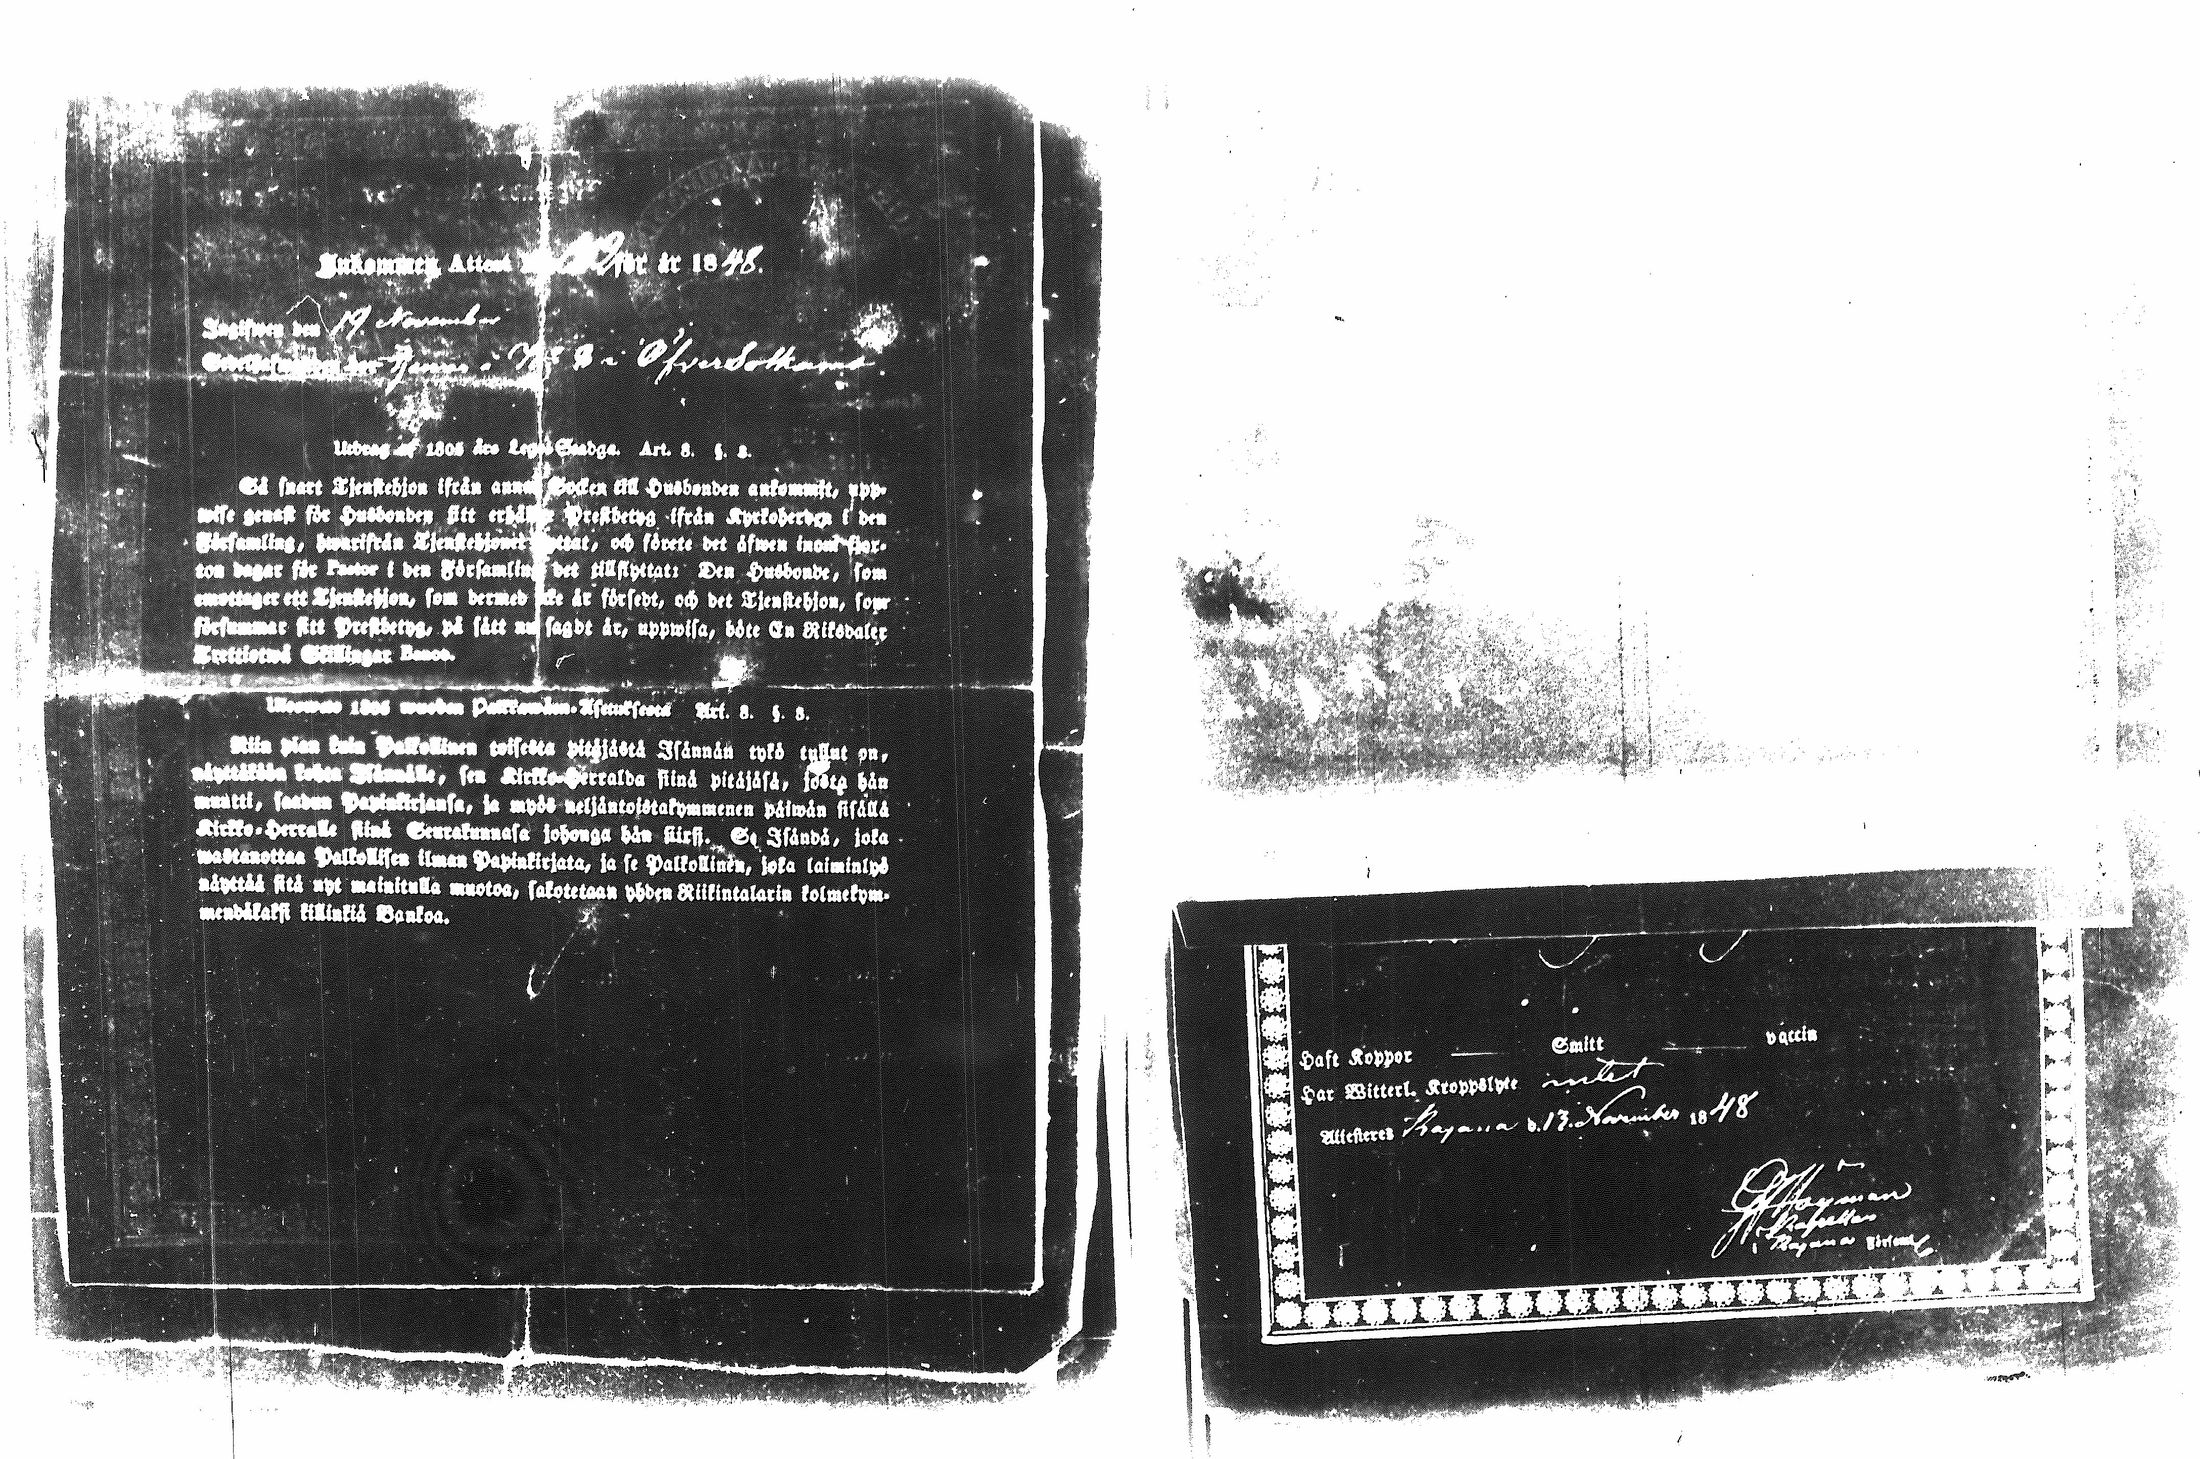 Inkommen Attest för år 1848.
Ingifwen den 19 November
i Öfver Sotkamo
Utdrag af 1805 års Lego-Stadga. Art. 8. §. 3.
Så snart Tjenstehjon ifrån annan Socken till Husbonden ankommit, upp-
wise genast för Husbonden sitt erhållne Prestbetyg ifrån Kyrkoherden i den
Församling, hwarifrån Tjenstehjonet flyttat, och förete det äfwen inom fjor-
ton dagar för Pastor i den Församling det tillflyttat: Den Husbonde, som
emottager ett Tjenstehjon, som dermed icke är försedt, och det Tjenstehjon, som
försummar sitt Prestbetyg, på sätt nu sagdt är, uppwisa, böte En Riksdaler
Trettiotwå Skillingar Banco.
Ulosweto 1805 wuoden Palkkawäen-Asetuksesta Art. 8. §. 3.
Niin pian kuin Palkollinen toisesta pitäjästä Isännän tykö tullut on,
näyttäköön kohta Isännälle, sen Kirkko-Herralda siinä pitäjäsä, josta hän
muutti, saadun Papinkirjansa, ja myös neljäntoistakymmenen päiwän sisällä
Kirkko-Herralle siinä Seurakunnasa johonga hän siirsi. Se Isändä, joka
wastanottaa Palkollisen ilman Papinkirjata, ja se Palkollinen, joka laiminlyö
näyttää sitä nyt mainitulla muotoa, sakotetaan yhden Riikintalarin kolmekym-
mendäkaksi killinkiä Bankoa.
Haft Koppor Smitt vaccin
Har Witterl. Kroppslyte intet
Attesteres Kajana d. 13. November 1848
Höyman
Kapellan
i Kajana Förs